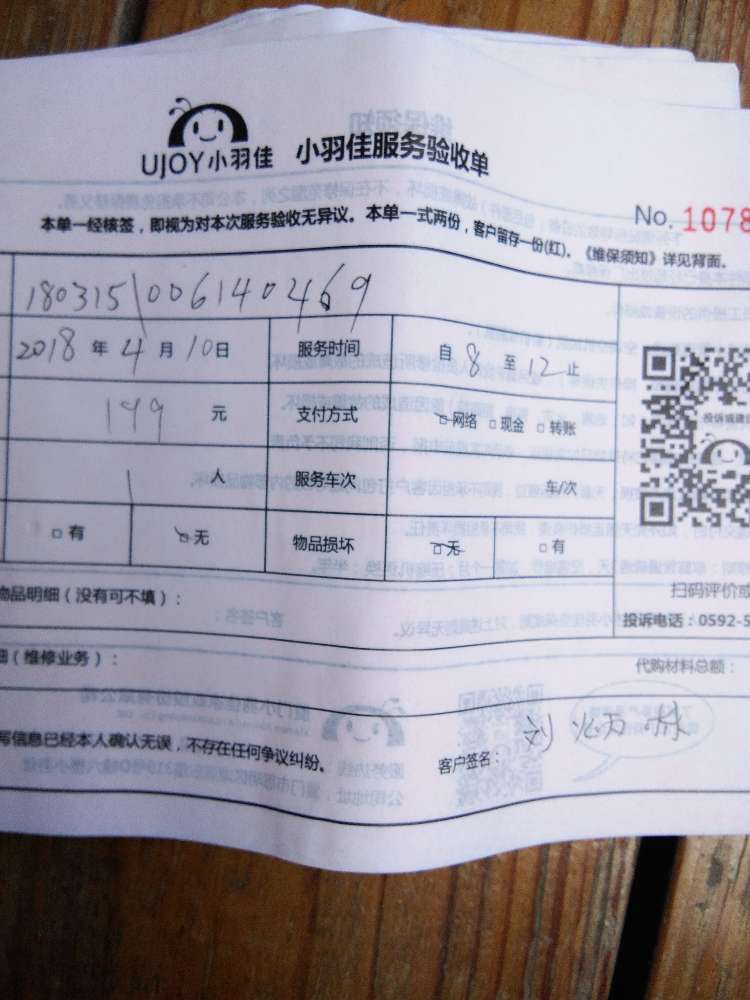 UJOY小羽佳 小羽佳服务验收单
No. 1078
本单一经核签，即视为对本次服务验收无异议。本单一式两份，客户留存一份(红)。《维保须知》详见背面。
1803151006140469
2018 年 4 月 10 日 服务时间 自 8 至 12 止
199 元 支付方式 网络 现金 转账
投诉或建
1 人 服务车次 车/次
有 无 物品损坏 无 有
物品明细（没有可不填）：
扫码评价或
投诉电话：0592-5
细（维修业务）：
代购材料总额：
写信息已经本人确认无误，不存在任何争议纠纷。
客户签名：刘